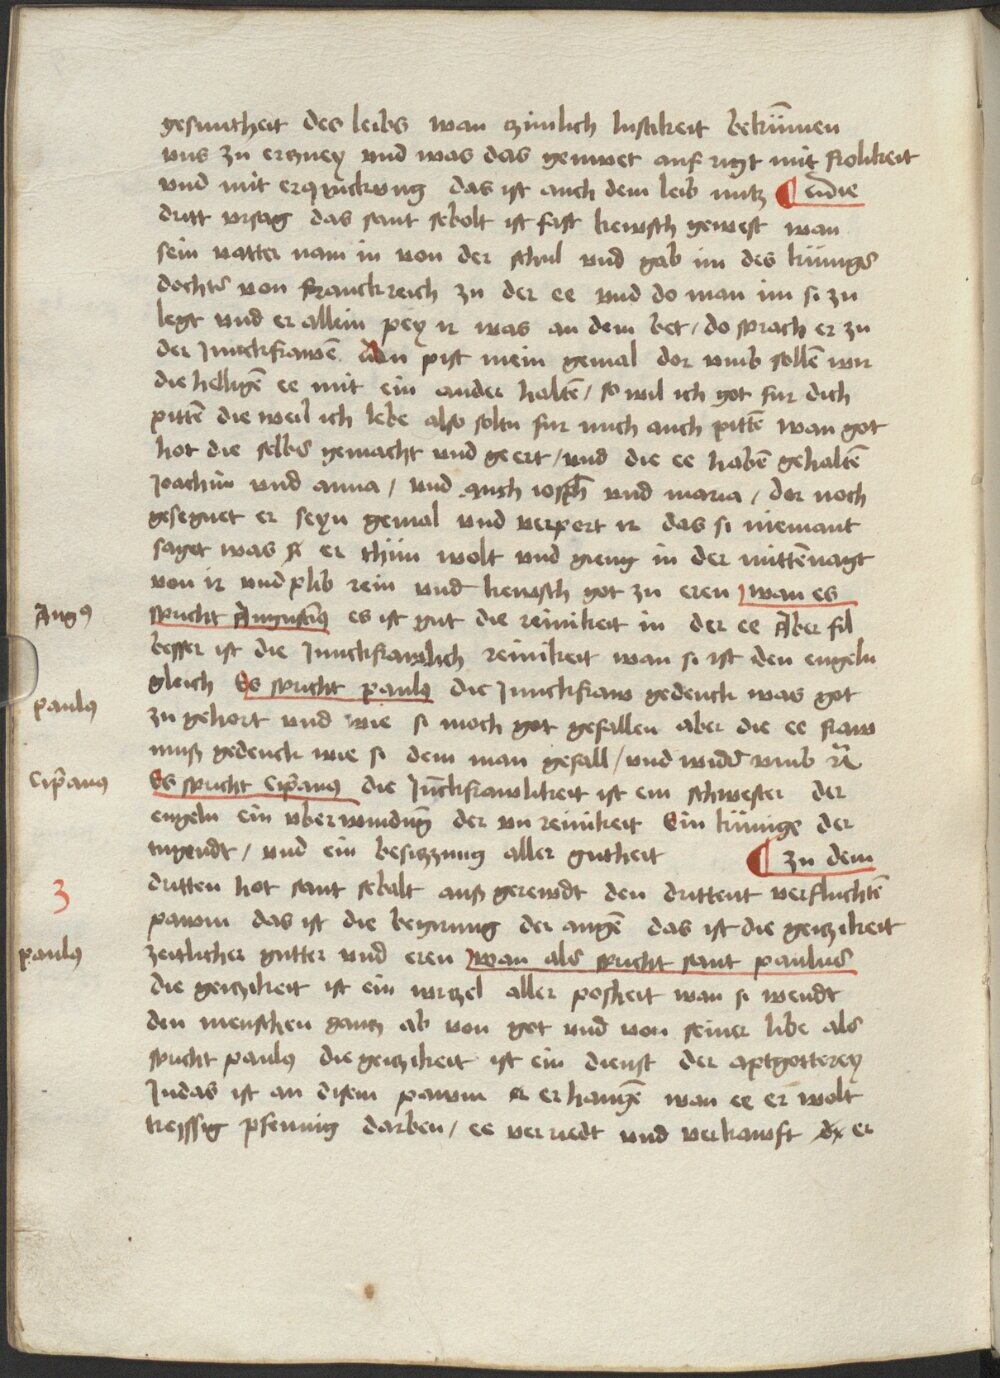 gesuntheit des leibs wan zimlich lustikeit bekūmen
vns zu erczney vnd was das gemuet auf richt mit frolikeit
vnd mit erquickung das ist auch dem leib nutz ¶ die
dritt vrsag das sant sebolt ist fast kewsch gewest wan
sein vatter nam in von der schul vnd gab im des künigs
dochter von Franckreich zu der ee vnd do man im si zu
legt vnd er allein pey ir was an dem bet / do sprach er zu
der Junckfrawē du pist mein gemal dor vmb sollen wir
die helligē ee mit ein ander haltē / so wil ich got fur dich
pittē die weil ich lebe also soltu fur mich auch pittē wan got
hot die selbs gemacht vnd ge ert / vnd die ee habē gehaltē
Joachim vnd anna / vnd auch ioseph vnd maria / dor noch
gesegnet er seyn gemal vnd verport ir das si niemant
saget was er thun wolt vnd gieng in der mittēnagt
von ir vnd plib rein vnd kewsch got zu eren wan es
Augꝰ
spricht Augustinꝰ es ist gut die reinikeit in der ee Aber fil
besser ist die Junckfrawlich reinikeit wan si ist den engeln
gleich Es spricht paulꝰ die Junckfraw gedenck was got
paulꝰ
zu gehort vnd wie si moch got gefallen aber die ee fraw
muß gedenck wie si dem man gefall / vnd widd vmb rc̄
Cip̄anꝰ
Es spricht Cip̄anꝰ die Jūckfrawlikeit ist ein schwester der
engeln ein vberwindūg der vn reinikeit Ein künige der
tugendt / vnd ein besiczung aller gutheit ¶ zu dem
3
dritten hot sant sebalt auß gerewdt den drittent verfluchtē
pawm das ist die begirung der augē das ist die geiczikeit
paulꝰ
zeitlicher gutter vnd eren wan als spricht sant paulus
die geiczikeit ist ein wrczel aller posheit wan si wendt
den menschen gancz ab von got vnd von seiner libe als
spricht paulꝰ die geiczikeit ist ein dienst der aptgotterey
Judas ist an disem pawm er hangē wan ee er wolt
treissig pfennig darben / ee verriedt vnd verkawft er